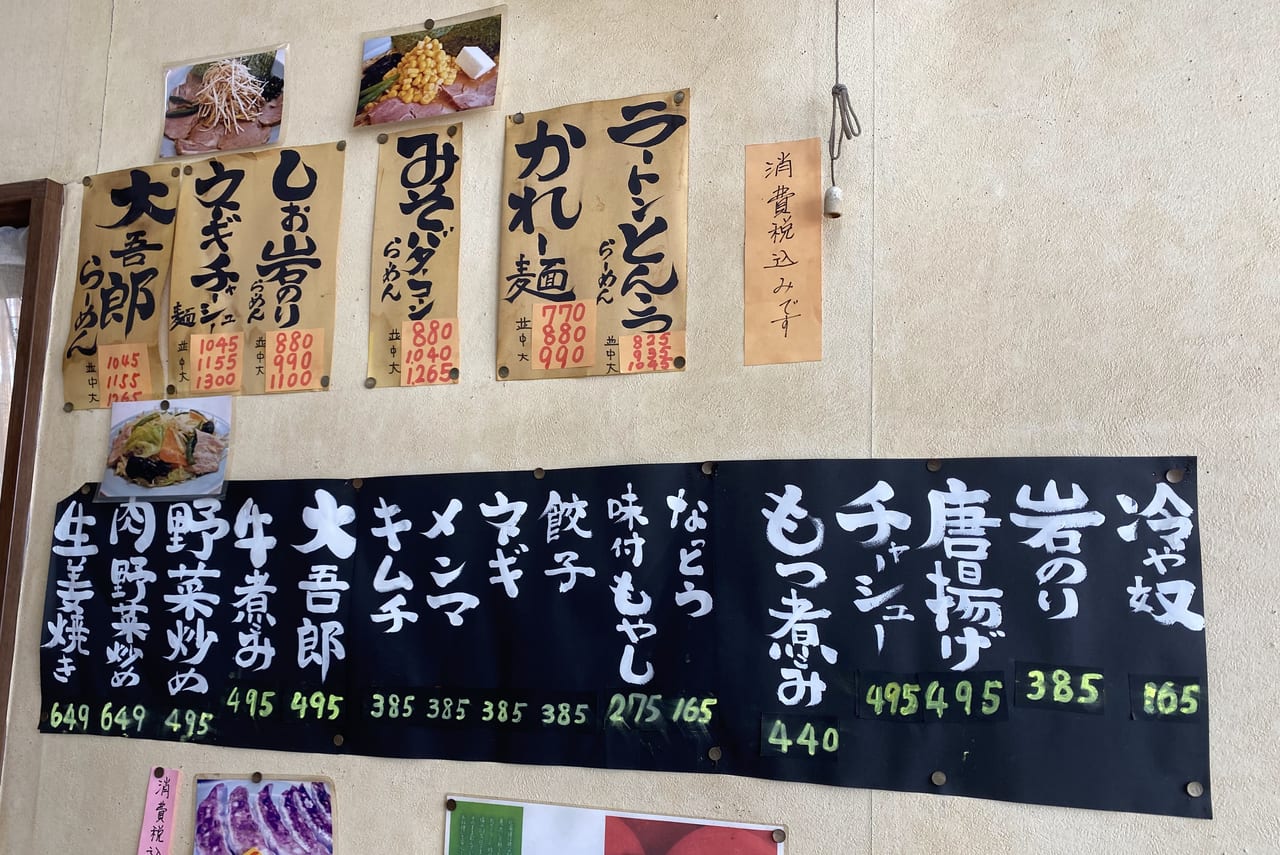 ラートンとんう
らーめん
並 825
中 935
大 1045
かれー麺
並 770
中 880
大 990
みそバターコーン
らーめん
並 880
中 1.040
大 1.265
しお岩のり
らーめん
並 880
中 990
大 1100
ウネギチャーシュー
麺
並 1045
中 1155
大 1300
大吾郎
らーめん
並 1045
中 1155
大 1265
消費税込みです
冷や奴 165
岩のり 385
唐揚げ 495
チャーシュー 495
もつ煮こみ 440
なっとう 165
味付もやし 275
餃子 385
ネギ 385
メンマ 385
キムチ 385
大吾郎 495
牛煮こみ 495
野菜炒め 495
肉野菜炒め 649
生姜焼き 649
消費税込